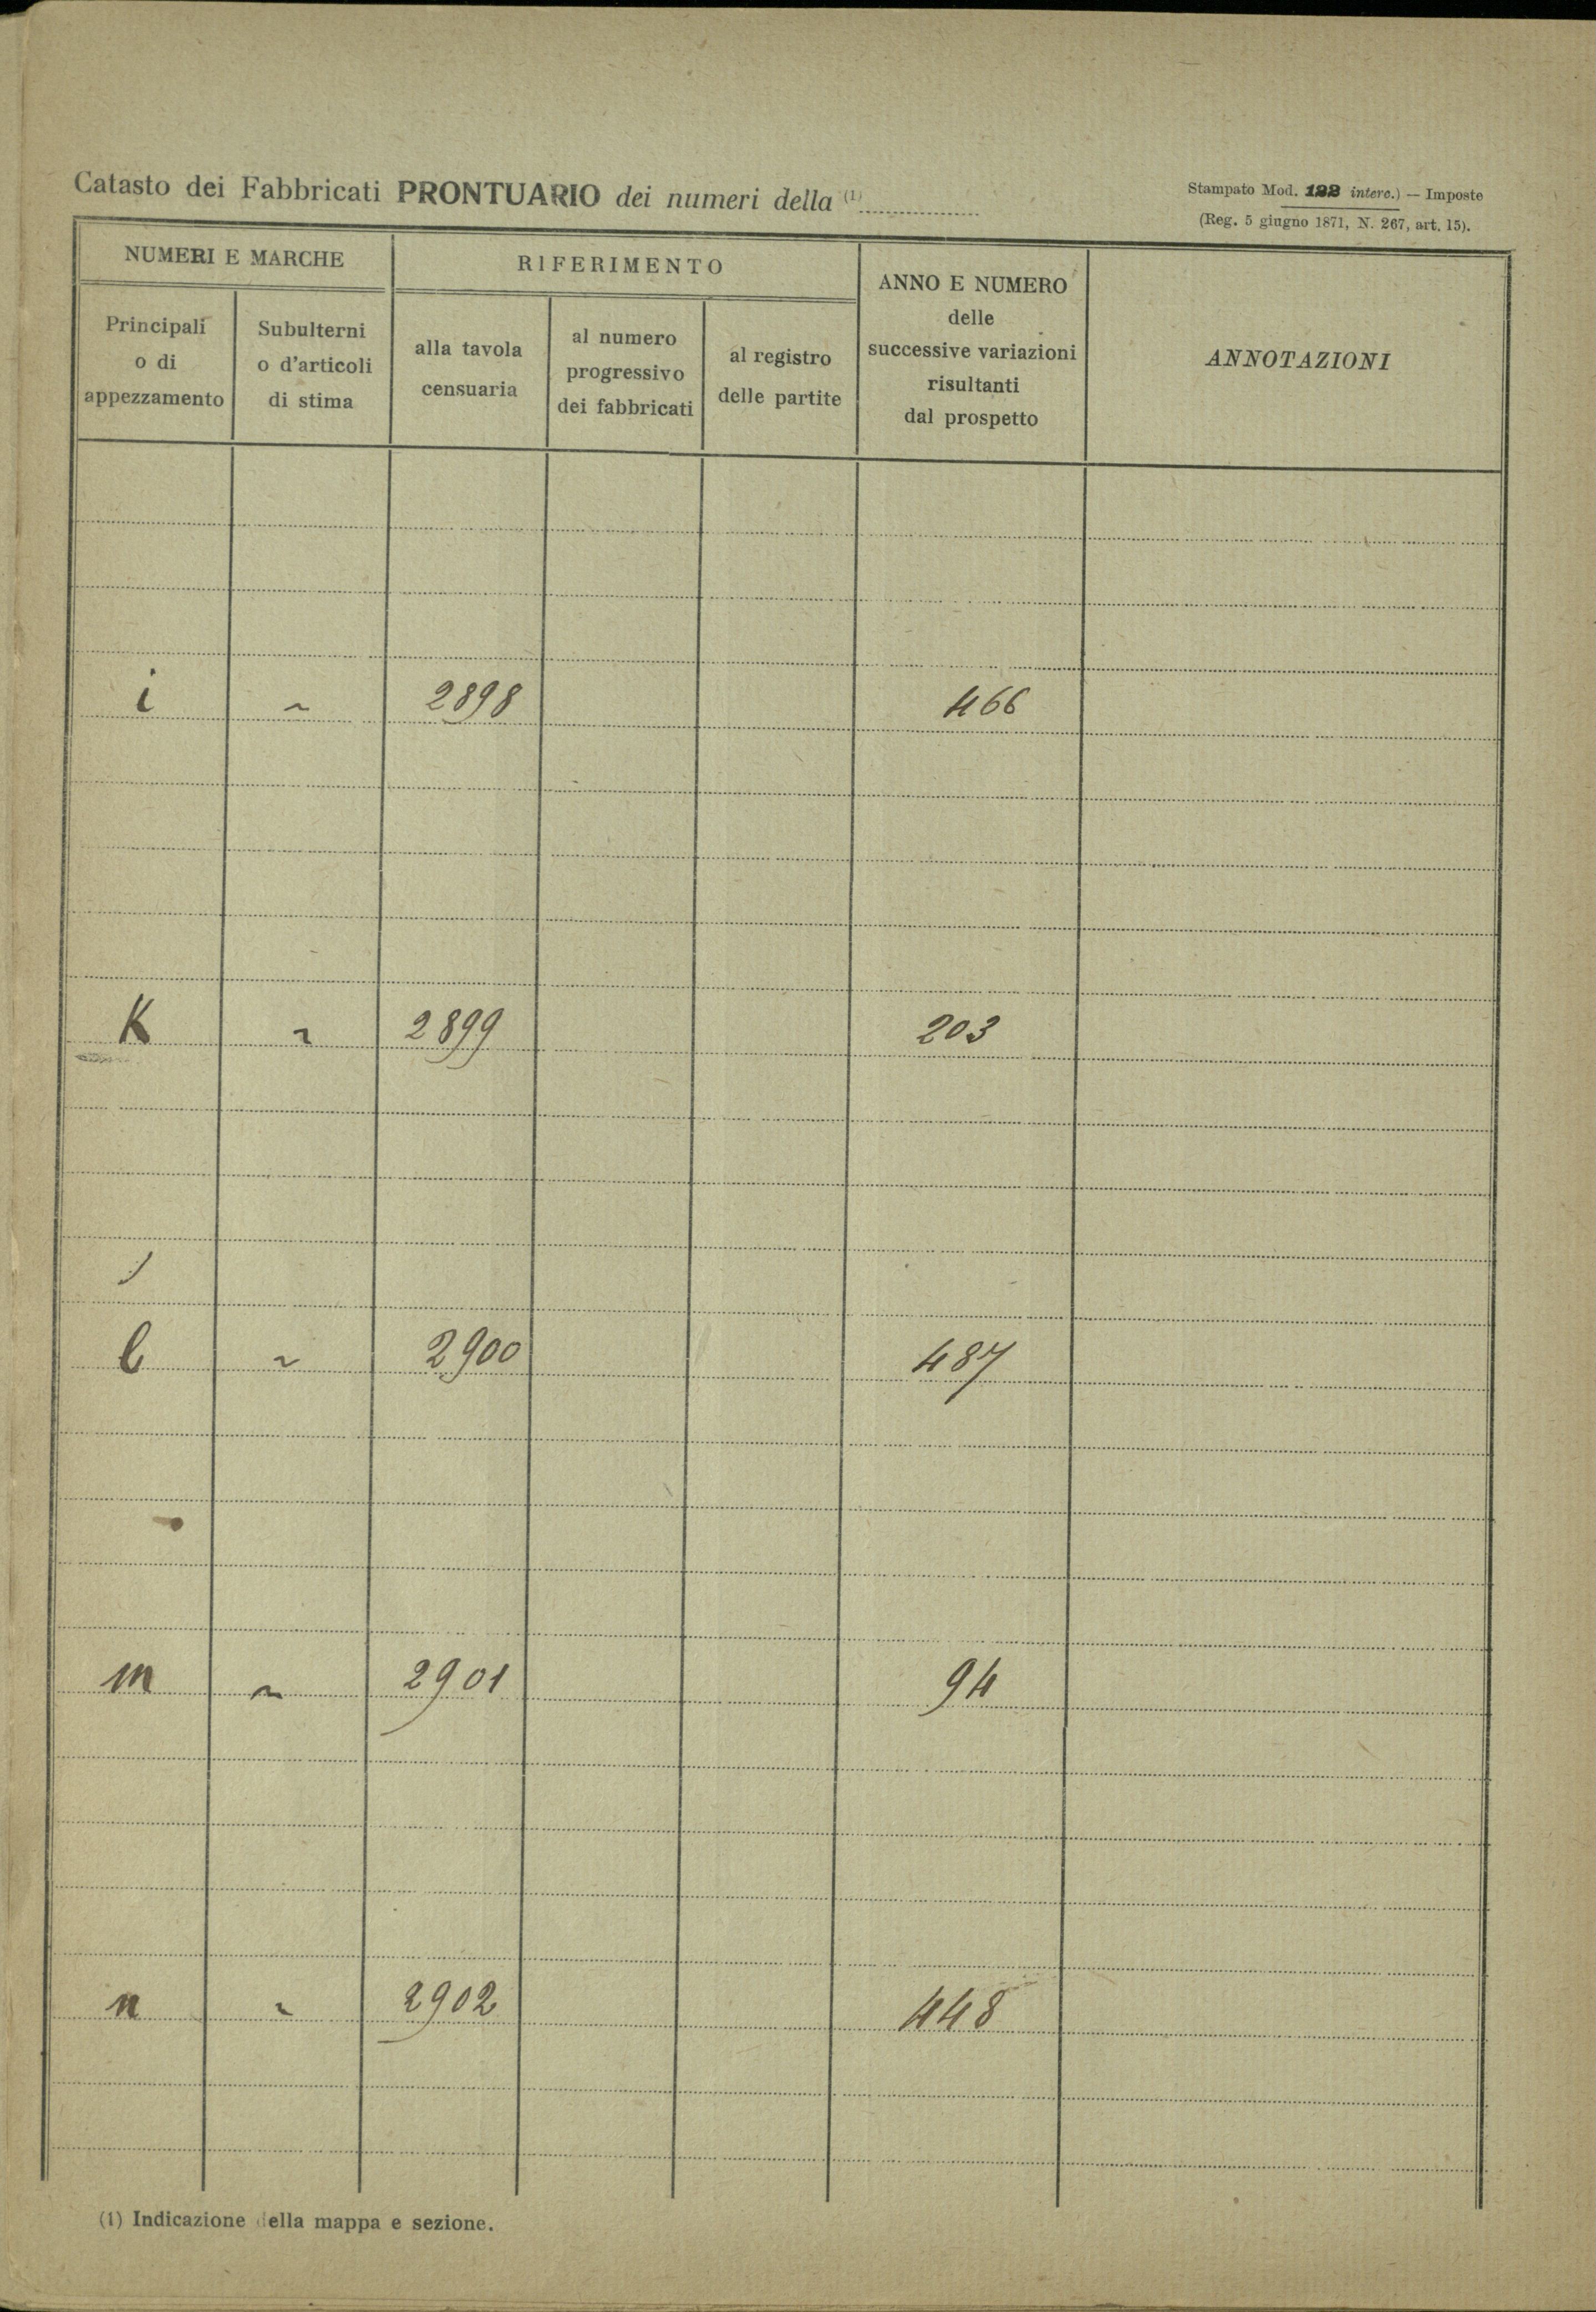 Catasto dei Fabbricati PRONTUARIO dei numeri della (1)
Stampato Mod. 122 interc.) — Imposte
(Reg. 5 giugno 1871, N. 267, art. 15).
NUMERI E MARCHE
RIFERIMENTO
ANNO E NUMERO
delle
successive variazioni
risultanti
dal prospetto
ANNOTAZIONI
Principali
o di
appezzamento
Subulterni
o d'articoli
di stima
alla tavola
censuaria
al numero
progressivo
dei fabbricati
al registro
delle partite
i ~ 2898 466
K ~ 2899 203
l ~ 2900 487
m ~ 2901 94
n ~ 2902 448
(1) Indicazione della mappa e sezione.